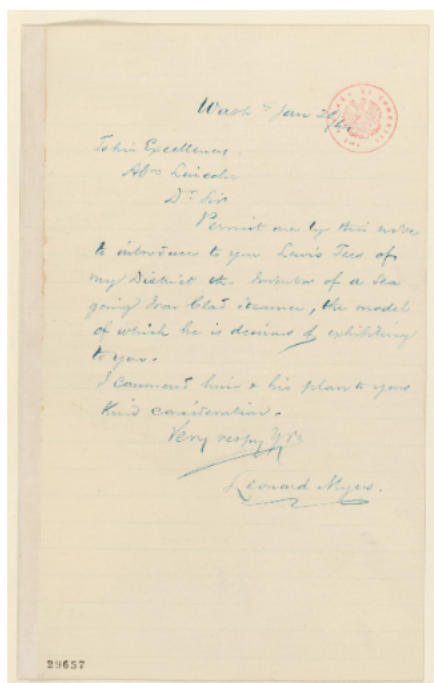 Washn Jan 2
To his Excellency
Abm Lincoln
Dr Sir
Permit me by this note
to introduce to you Lewis Tees of
my District the Inventor of a Sea
going Iron Clad steamer, the model
of which he is desirous of exhibiting
to you.
I commend him & his plan to your
kind consideration.
Very respy Yrs
Leonard Myers.
29657